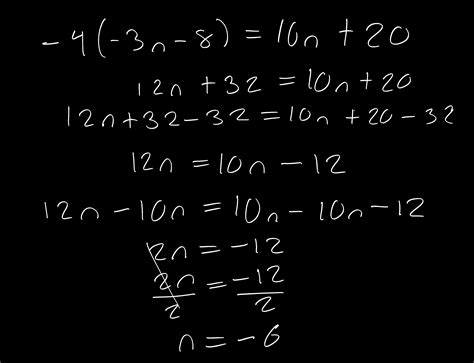 -4(-3n-8) = 10n + 20
12n + 32 = 10n + 20
12n + 32 - 32 = 10n + 20 - 32
12n = 10n - 12
12n - 10n = 10n - 10n - 12
2n = -12
2n/2 = -12/2
n = -6